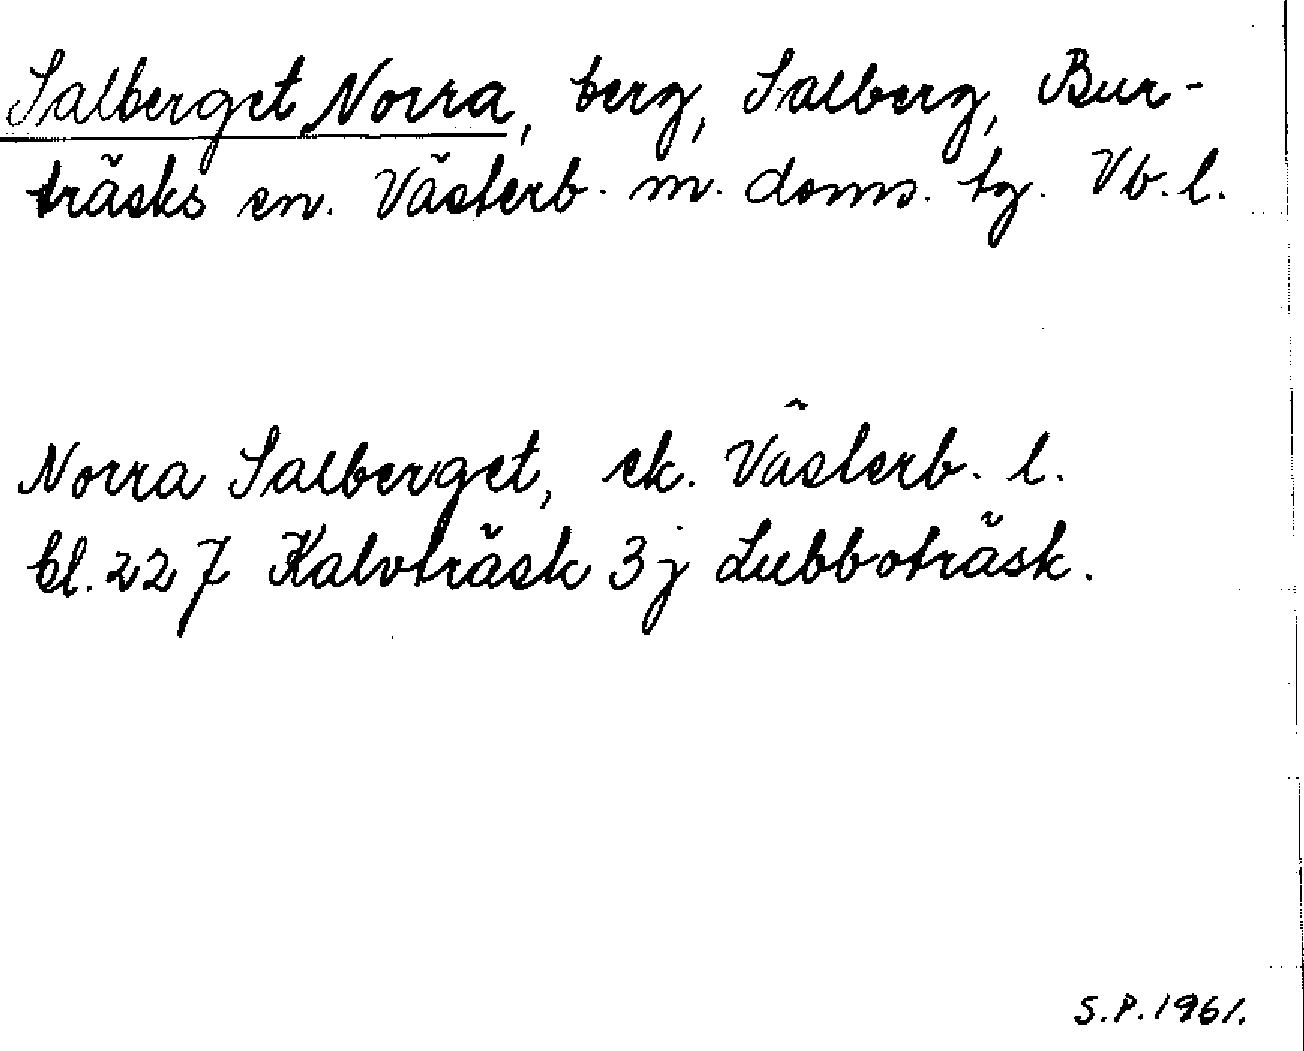 Salberget Norra, berg, Salberg, Bur-
träsks sn. Västerb. m. doms. tg. Vb. l.
Norra Salberget, ek. Västerb. l.
bl. 227 Kalvträsk 3j Lubboträsk.
S.P. 1961.